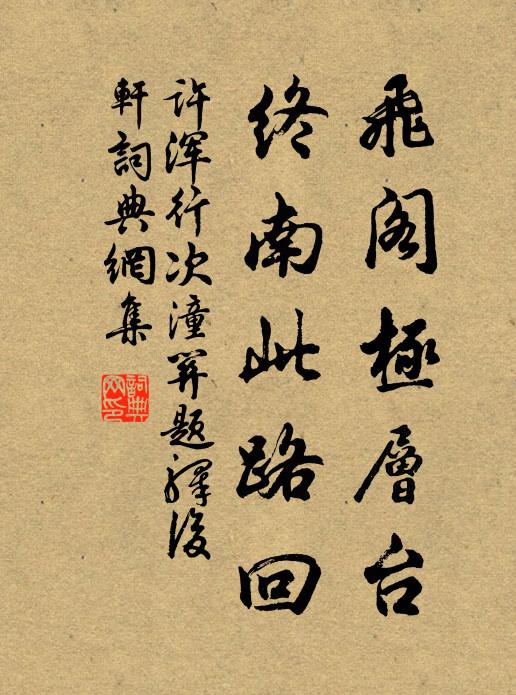 飛閣極層台
終南此路回
許渾行次潼關題驛後
軒詞典網集
詞典
网印